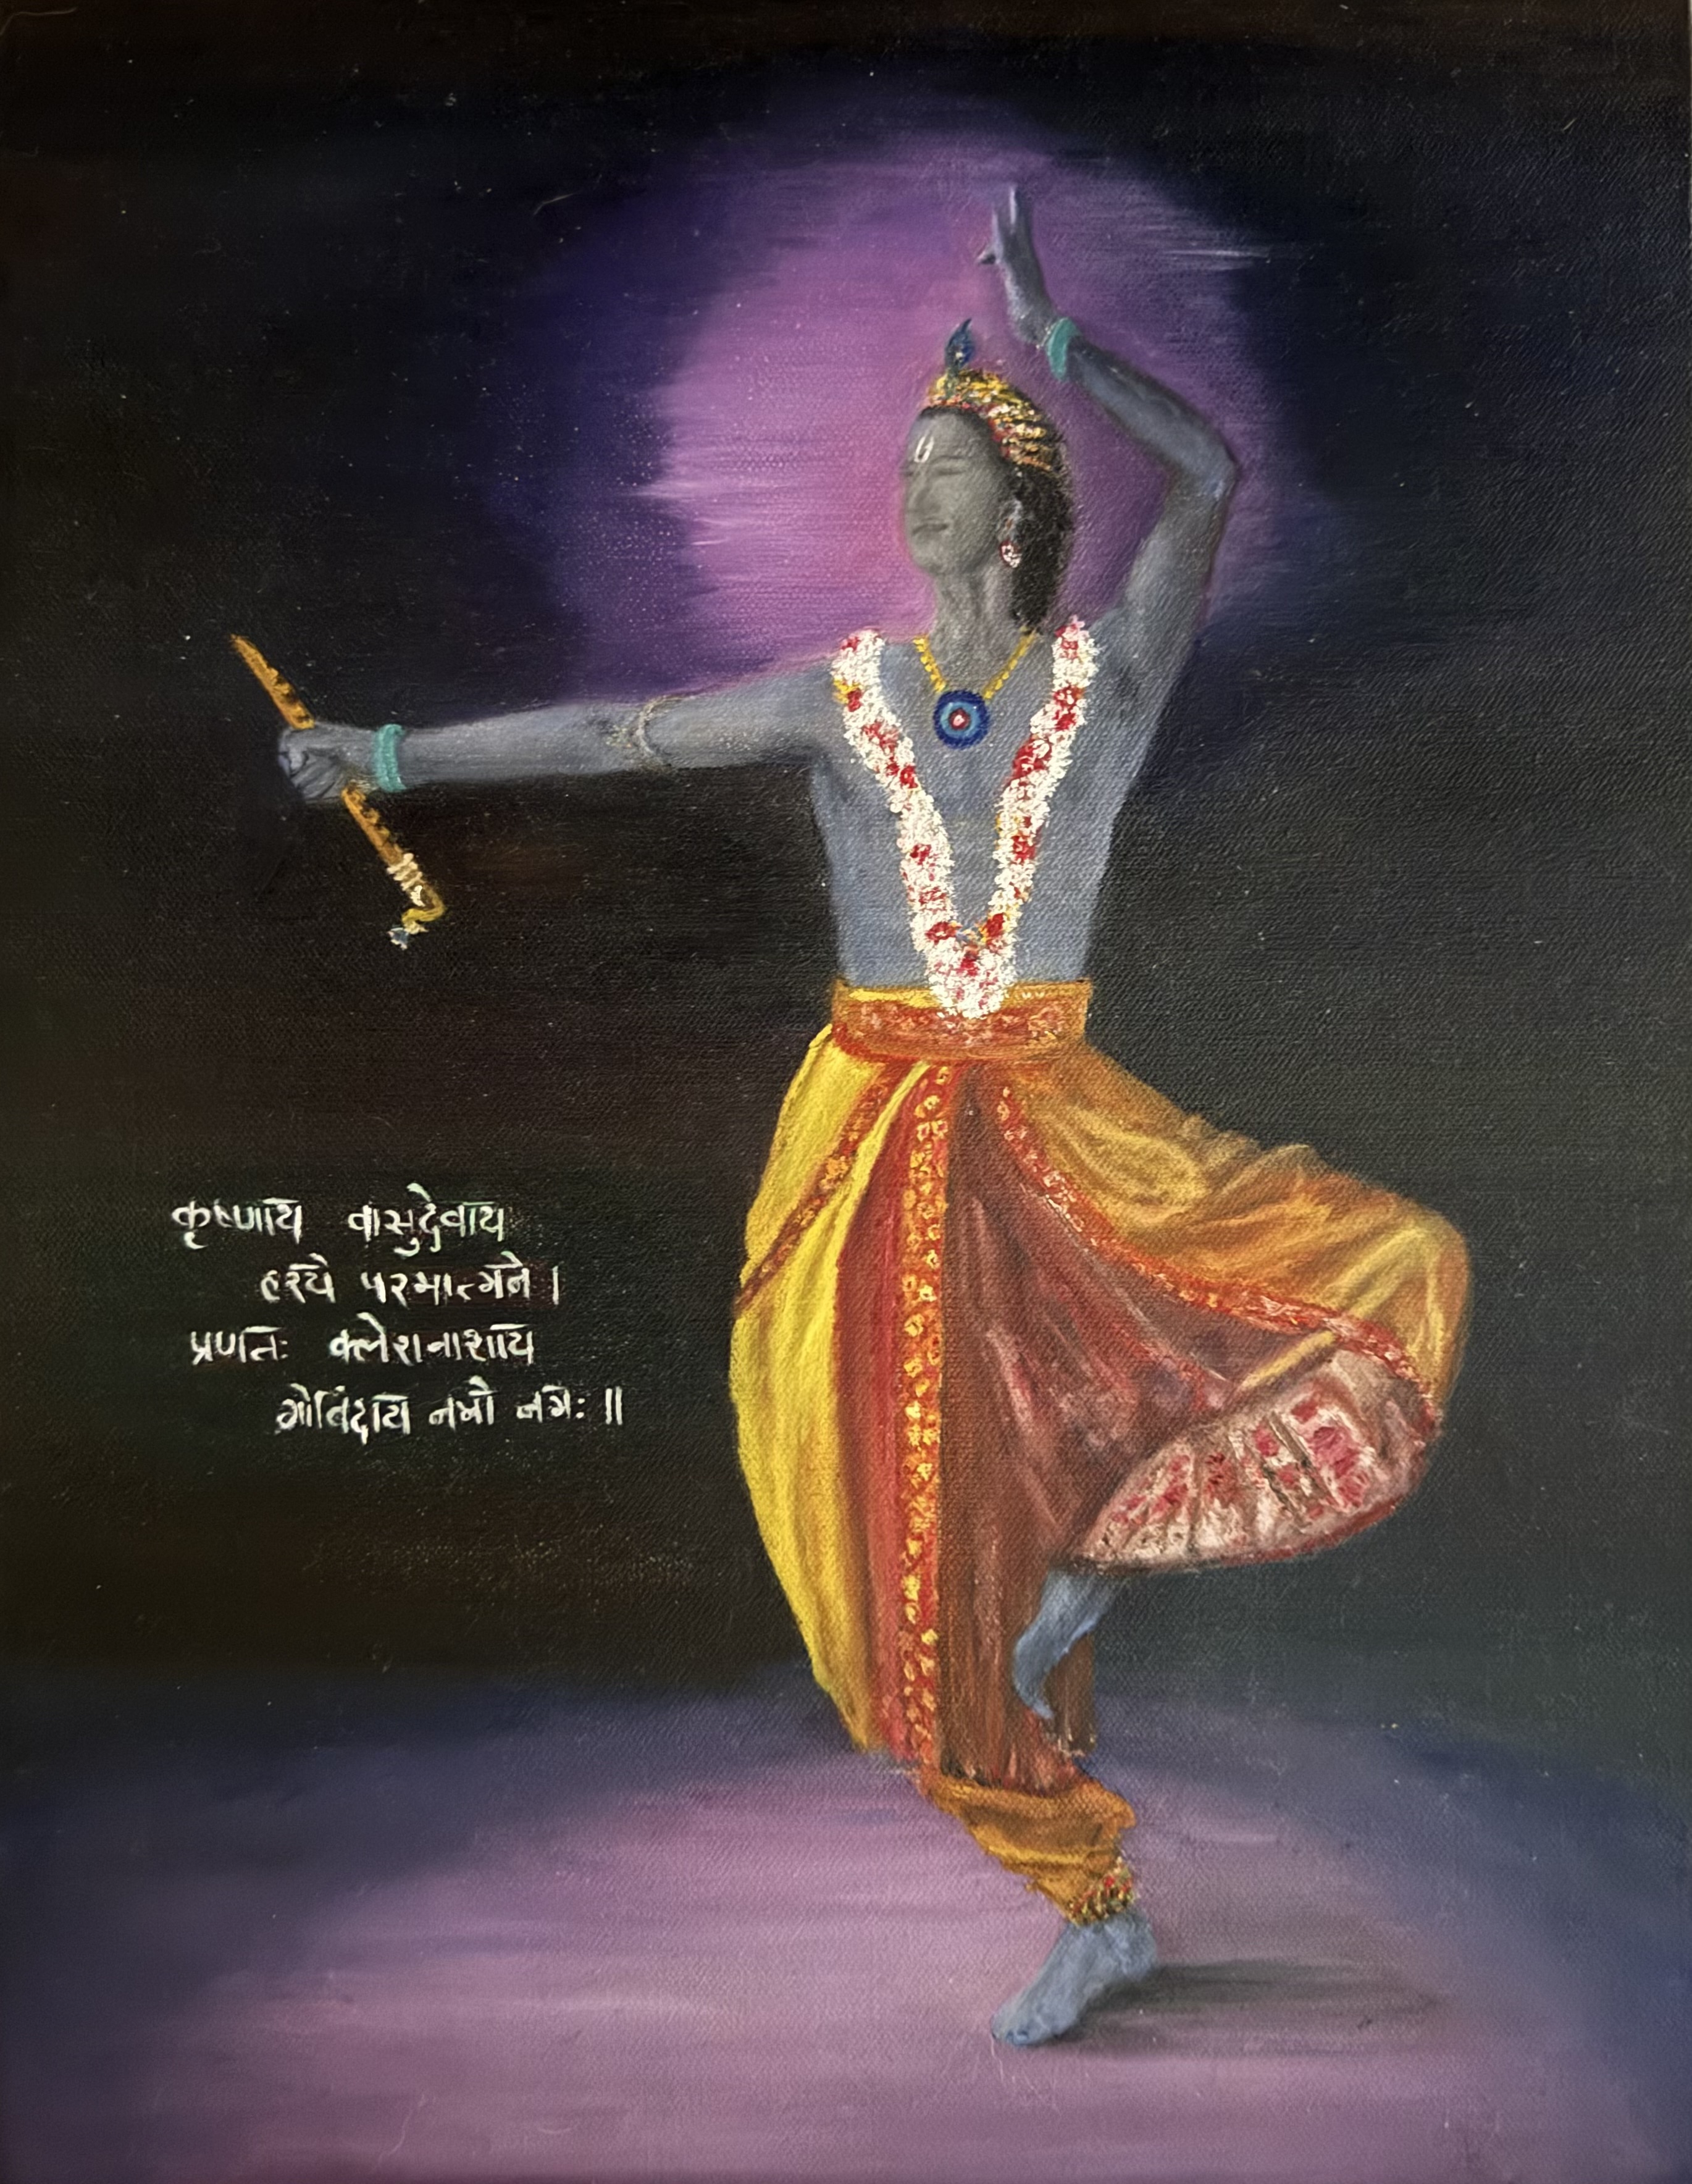 कृष्णाय वासुदेवाय
हरये परमात्मने ।
प्रणतः क्लेशनाशाय
गोविंदाय नमो नमः ॥